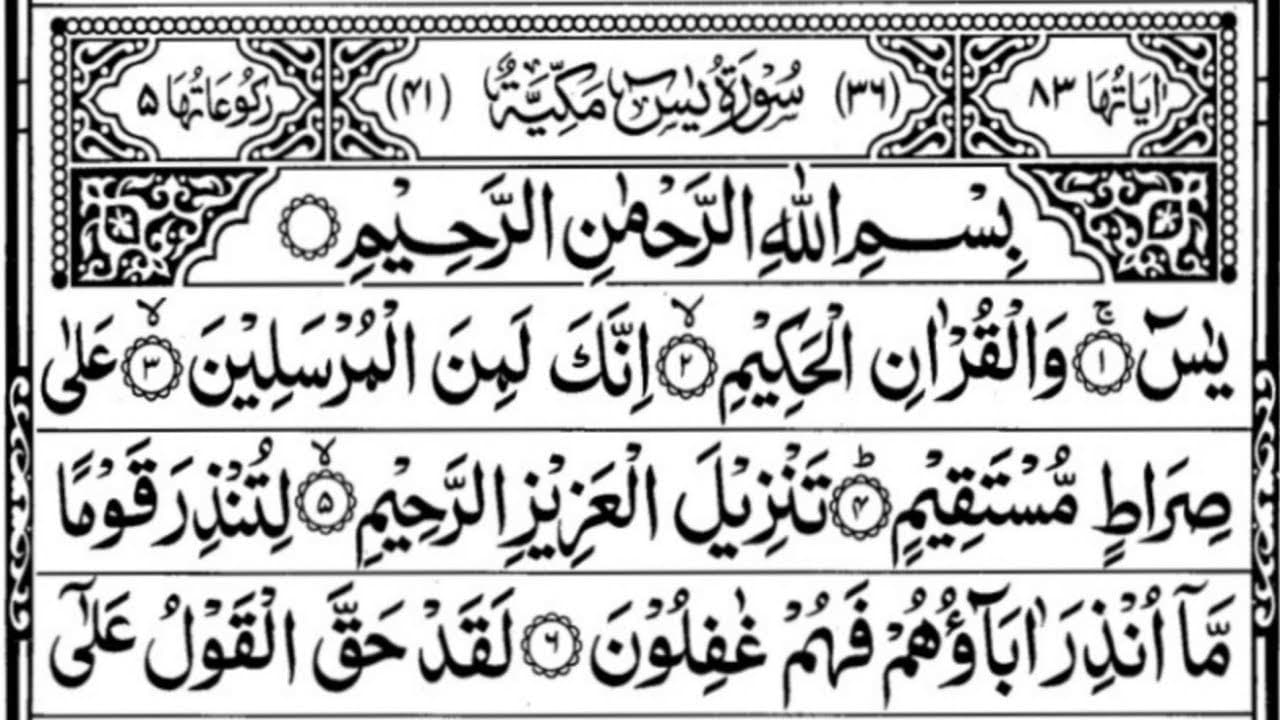 اٰیَاتُهَا ٨٣ (٣٦) سُوْرَةُ یٰسٓ مَكِّیَّةٌ (٤١) رُكُوْعَاتُهَا ۵
بِسْمِ اللّٰهِ الرَّحْمٰنِ الرَّحِیْمِ
یٰسٓ ۚ﴿۱﴾ وَالْقُرْاٰنِ الْحَكِیْمِ ۙ﴿۲﴾ اِنَّكَ لَمِنَ الْمُرْسَلِیْنَ ۙ﴿۳﴾ عَلٰی
صِرَاطٍ مُّسْتَقِیْمٍ ؕ﴿۴﴾ تَنْزِیْلَ الْعَزِیْزِ الرَّحِیْمِ ۙ﴿۵﴾ لِتُنْذِرَ قَوْمًا
مَّاۤ اُنْذِرَ اٰبَآؤُهُمْ فَهُمْ غٰفِلُوْنَ ﴿۶﴾ لَقَدْ حَقَّ الْقَوْلُ عَلٰۤی